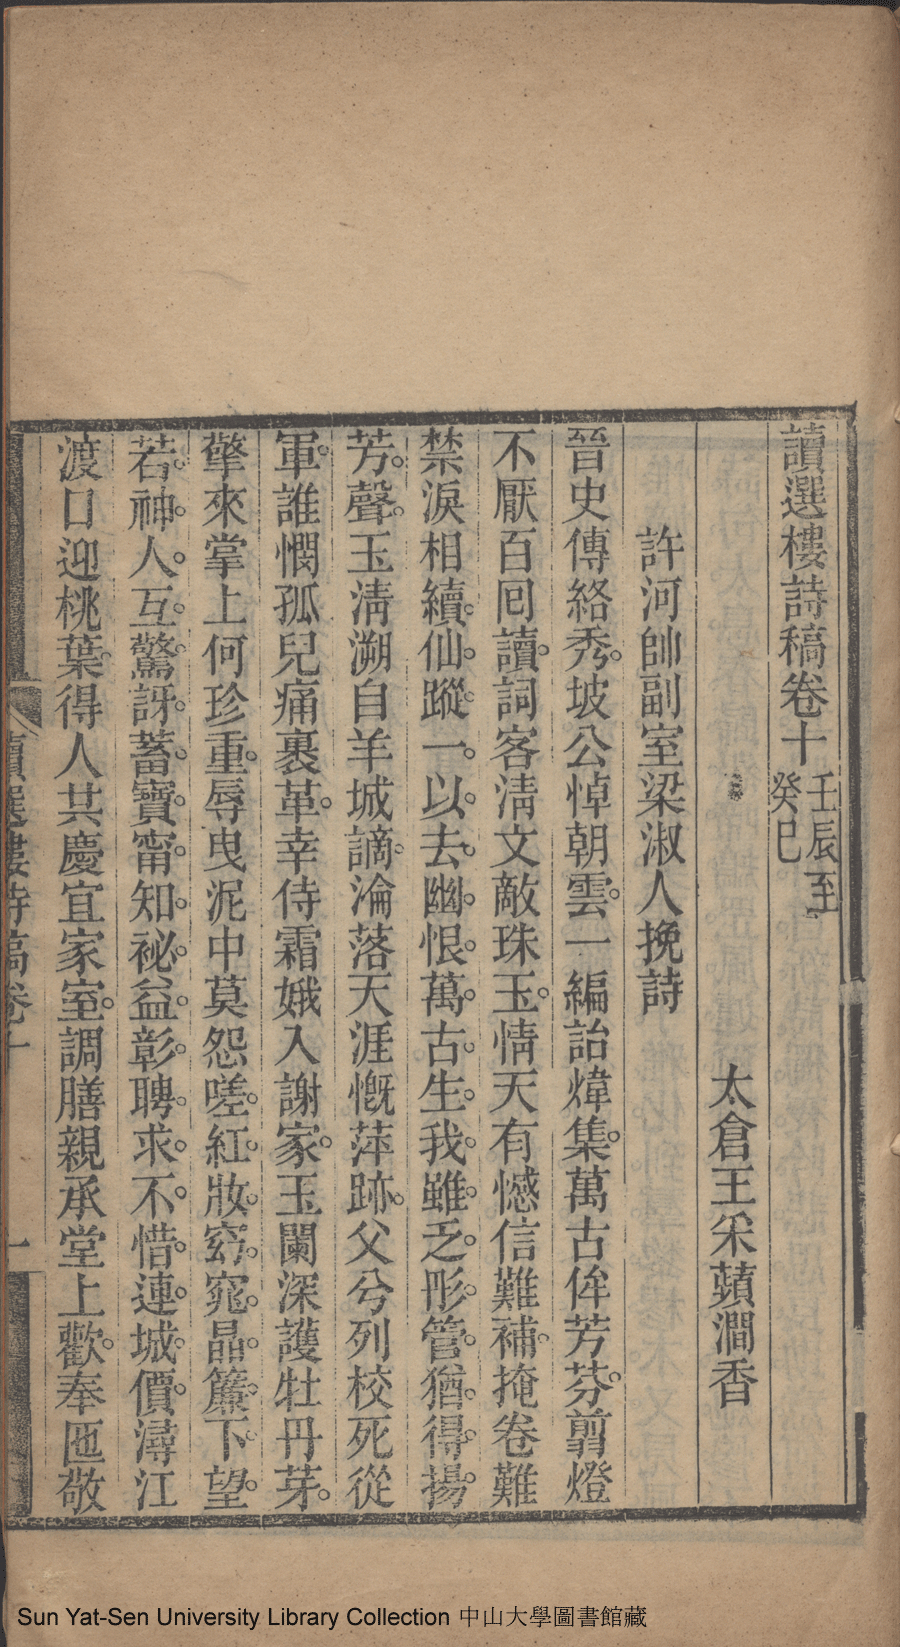 讀選樓詩稿卷十 壬辰至癸巳
太倉王采蘋澗香
許河帥副室梁淑人挽詩
晉史傳絡秀。坡公悼朝雲。一編詒煒集。萬古侔芳芬。翦燈
不厭百回讀。詞客淸文敵珠玉。情天有憾信難補。掩卷難
禁淚相續。仙蹤一以去。幽恨萬古生。我雖乏彤管。猶得揚
芳聲。玉淸溯自羊城謫。淪落天涯慨萍跡。父兮列校死從
軍。誰憫孤兒痛裹革。幸侍霜娥入謝家。玉闌深護牡丹芽。
擎來掌上何珍重。辱曳泥中莫怨嗟。紅妝窈窕晶簾下。望
若神人互驚訝。蓄寶甯知祕益彰。聘求不惜連城價。潯江
渡口迎桃葉。得人共慶宜家室。調膳親承堂上歡。奉匜敬
讀選樓詩稿卷十
一
Sun Yat-Sen University Library Collection 中山大學圖書館藏